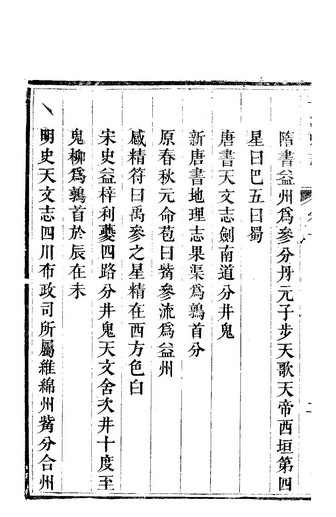 隋書益州爲參分丹元子步天歌天帝西垣第四
星曰巴五曰蜀
唐書天文志劍南道分井鬼
新唐書地理志果渠爲鶉首分
原春秋元命苞曰觜參流爲益州
感精符曰禹參之星精在西方色白
宋史益梓利夔四路分井鬼天文舍次井十度至
鬼柳爲鶉首於辰在未
明史天文志四川布政司所屬維綿州觜分合州